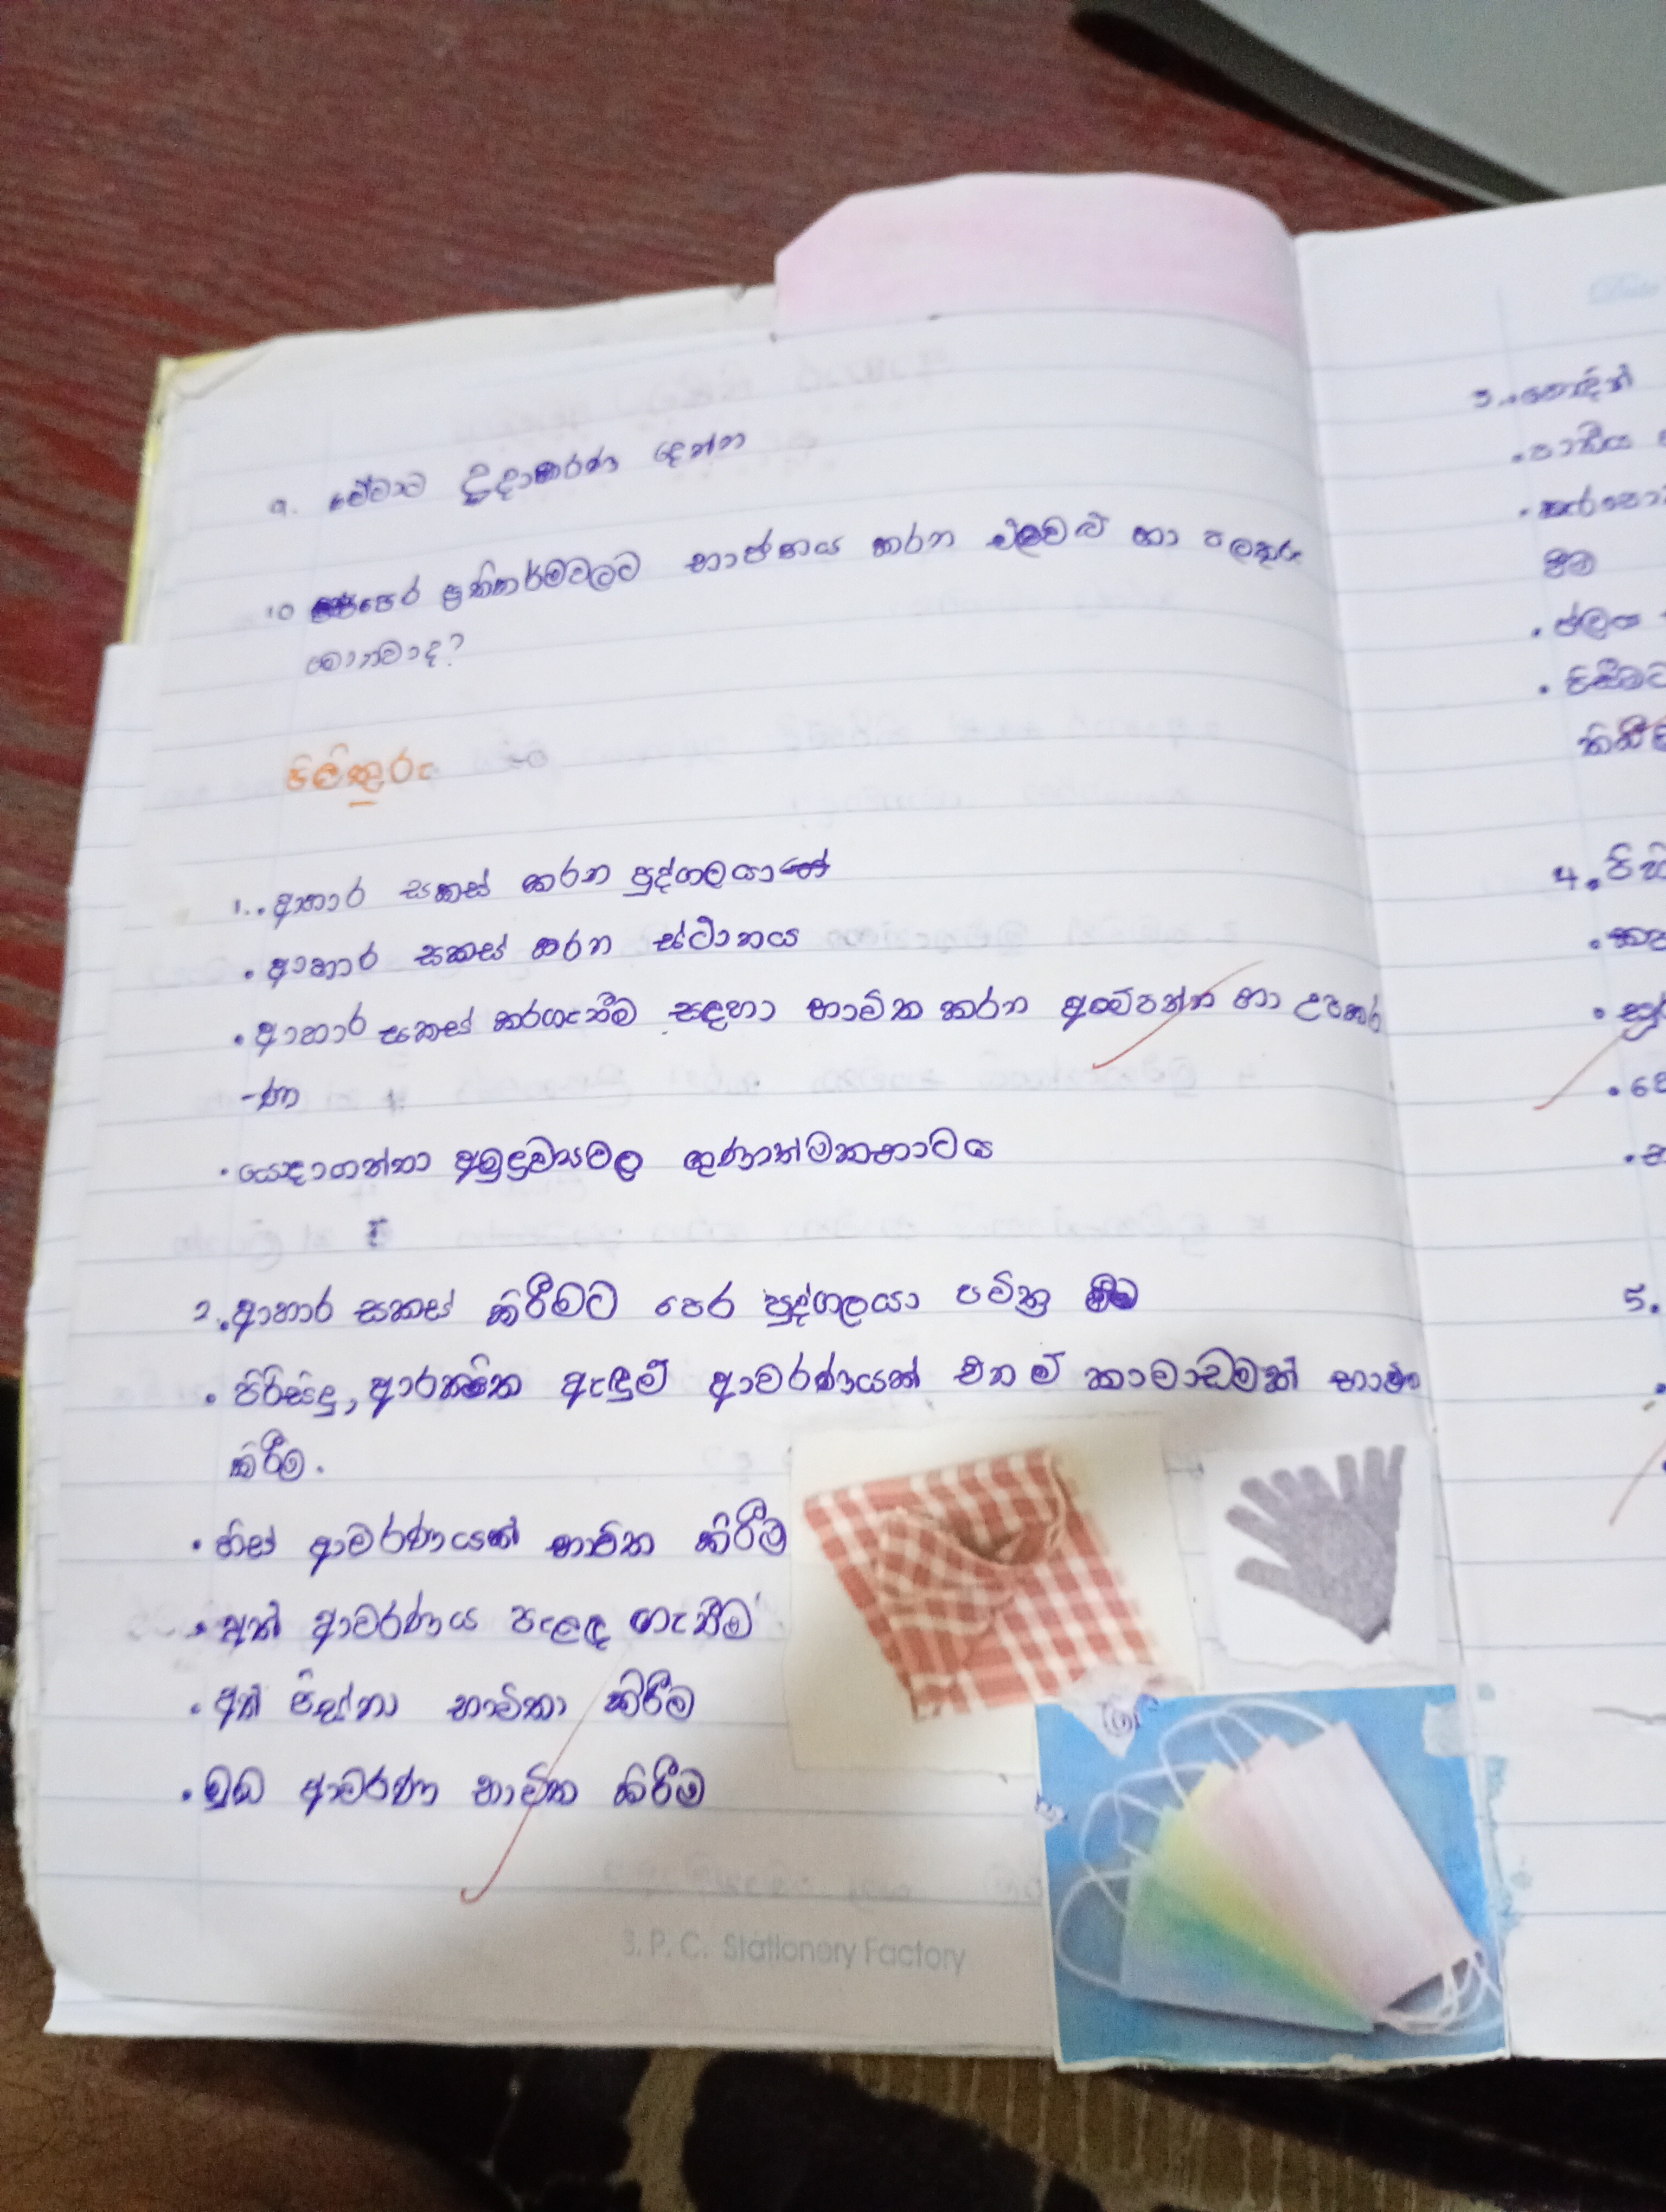 9. මේවාට උදාහරණ දෙන්න
10 පෙර ප්‍රතිකර්මවලට භාජනය කරන එළවළු හා පලතුරු
මොනවාද?
පිළිතුරු
1. . ආහාර සකස් කරන පුද්ගලයා
. ආහාර සකස් කරන ස්ථානය
. ආහාර සකස් කරගැනීම සඳහා භාවිත කරන අමෙපන්න හා උපකර
-ණ
. යොදාගන්නා අමුද්‍රව්‍යවල ගුණාත්මකභාවය
2. . ආහාර සකස් කිරීමට පෙර පුද්ගලයා පවිත්‍ර වීම
. පිරිසිදු, ආරක්ෂිත ඇඳුම් ආවරණයක් එනම් කාමාඩමක් භාවිත
කිරීම.
. හිස් ආවරණයක් භාවිත කිරීම
. අත් ආවරණය පැළඳ ගැනීම
. අත් පිස්නා භාවිතා කිරීම
. මුඛ ආවරණ භාවිත කිරීම
S. P. C. Stationery Factory
Date
3. . හොඳින්
. පාඩිය
ජලය
4. .
5. .